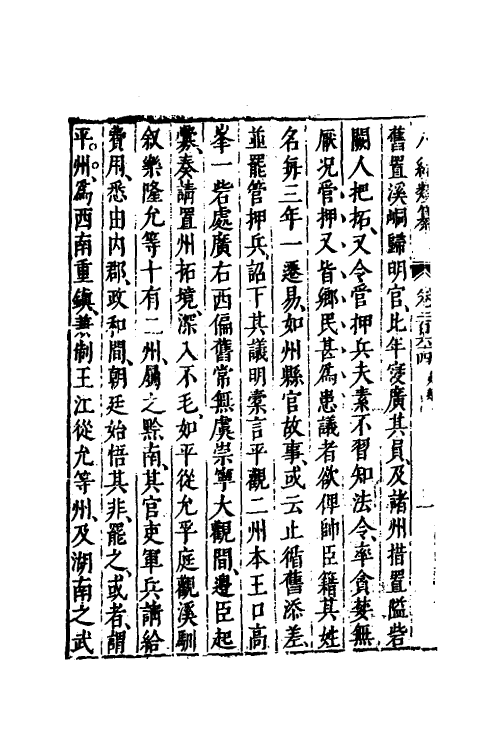 舊置溪峒歸明官比年寖廣其員及諸州措置隘砦
闕人把拓又令管押兵夫素不習知法令率貪婪無
厭況管押又皆鄉民甚爲患議者欲俾帥臣籍其姓
名每三年一遷易如州縣官故事或云止循舊添差
並罷管押兵詔下其議明橐言平觀二州本王口高
峯一砦處廣右西偏舊常無虞崇寧大觀間邊臣起
釁奏請置州拓境深入不毛如平從允孚庭觀溪馴
叙樂隆允等十有二州屬之黔南其官吏軍兵請給
費用悉由内郡政和間朝廷始悟其非罷之或者謂
平州爲西南重鎮兼制王江從允等州及湖南之武